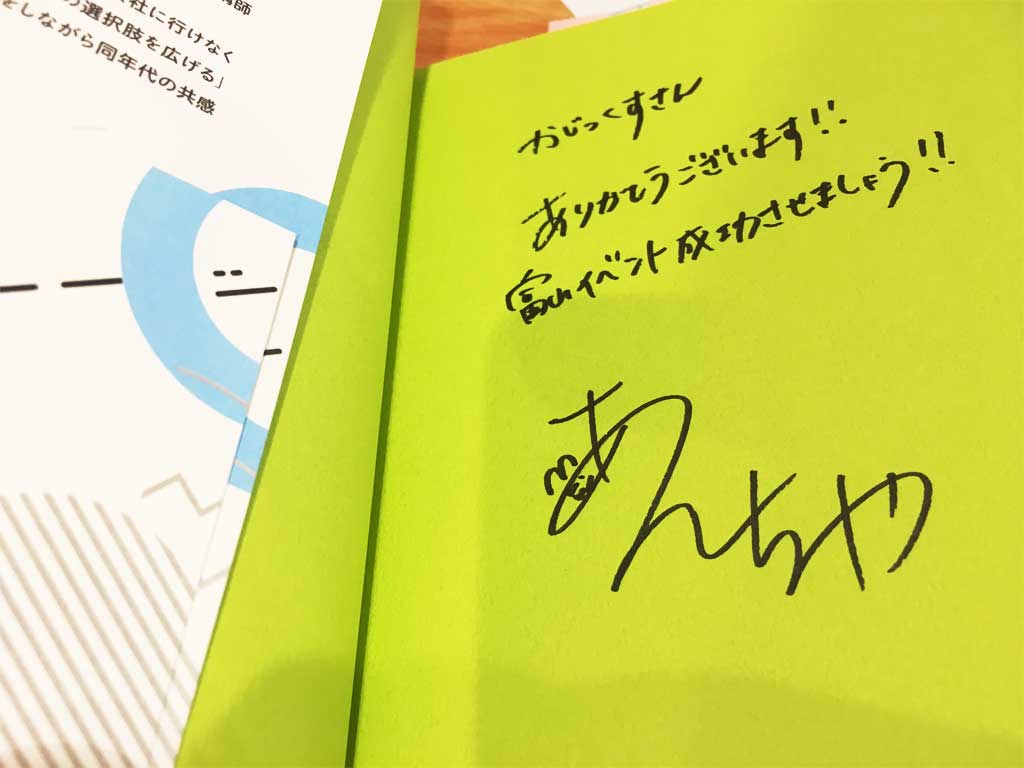 講師
社に行けなく
の選択肢を広げる」
をしながら同年代の共感
かじっくすさん
ありがとうございます!!
富山イベント成功させましょう!!
あんちゃ